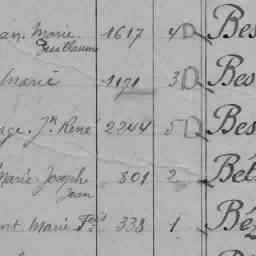 an. Marie 1617 4 D Bes
Guillaume
Marie 1171 3 D Bes
Jn René 2244 5 D Bes
Marie Joseph 801 2 Bet
Jean
nt Marie Fs 338 1 Béz